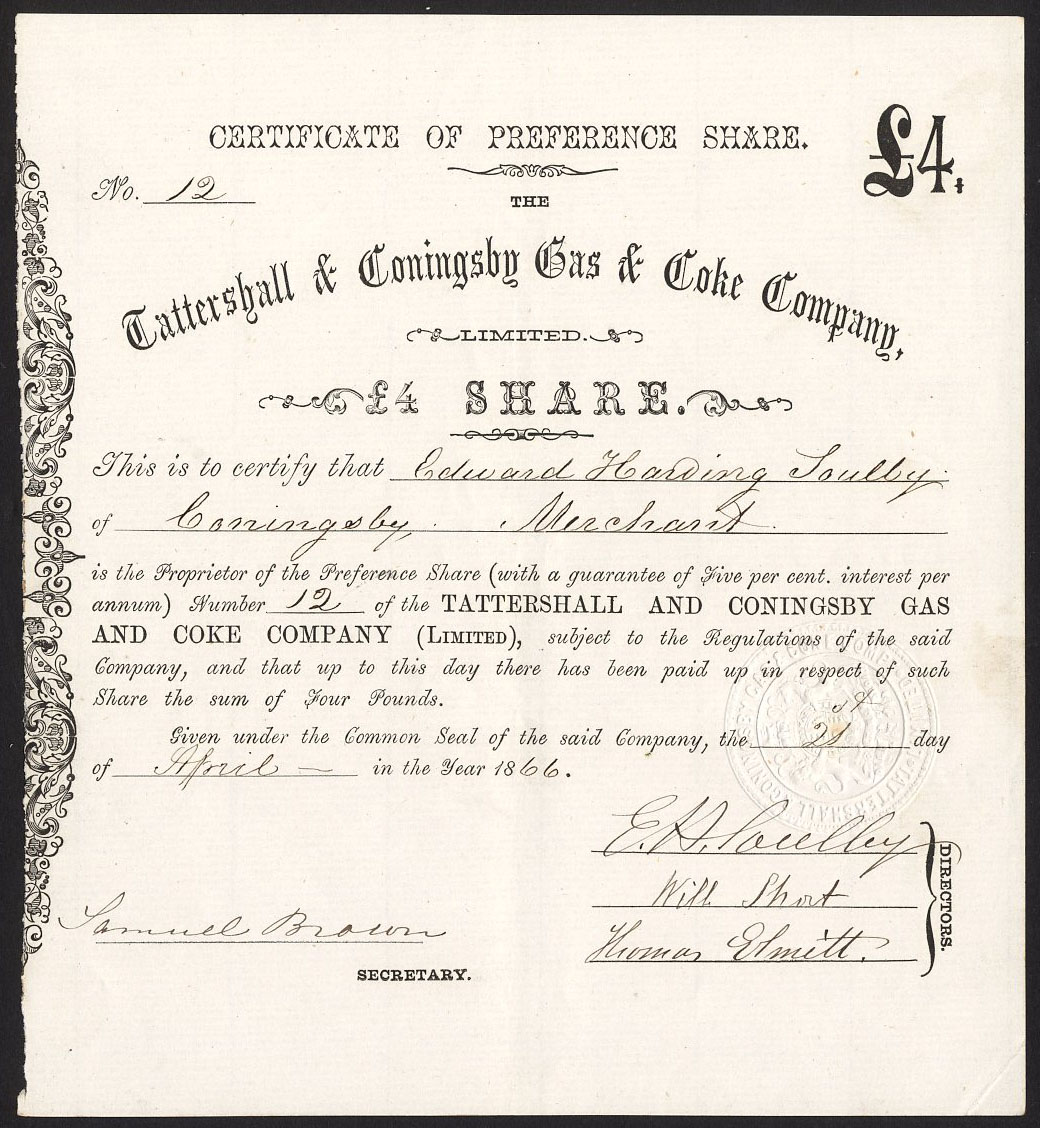 CERTIFICATE OF PREFERENCE SHARE.
£4.
No. 12
THE
Tattershall & Coningsby Gas & Coke Company,
LIMITED.
£4 SHARE.
This is to certify that Edward Harding Soulby
of Coningsby, Merchant
is the Proprietor of the Preference Share (with a guarantee of Five per cent. interest per
annum) Number 12 of the TATTERSHALL AND CONINGSBY GAS
AND COKE COMPANY (LIMITED), subject to the Regulations of the said
Company, and that up to this day there has been paid up in respect of such
Share the sum of Four Pounds.
Given under the Common Seal of the said Company, the 21st day
of April — in the Year 1866.
E. H. Soulby
Will Short
Thomas Elmitt.
DIRECTORS.
Samuel Brown
SECRETARY.